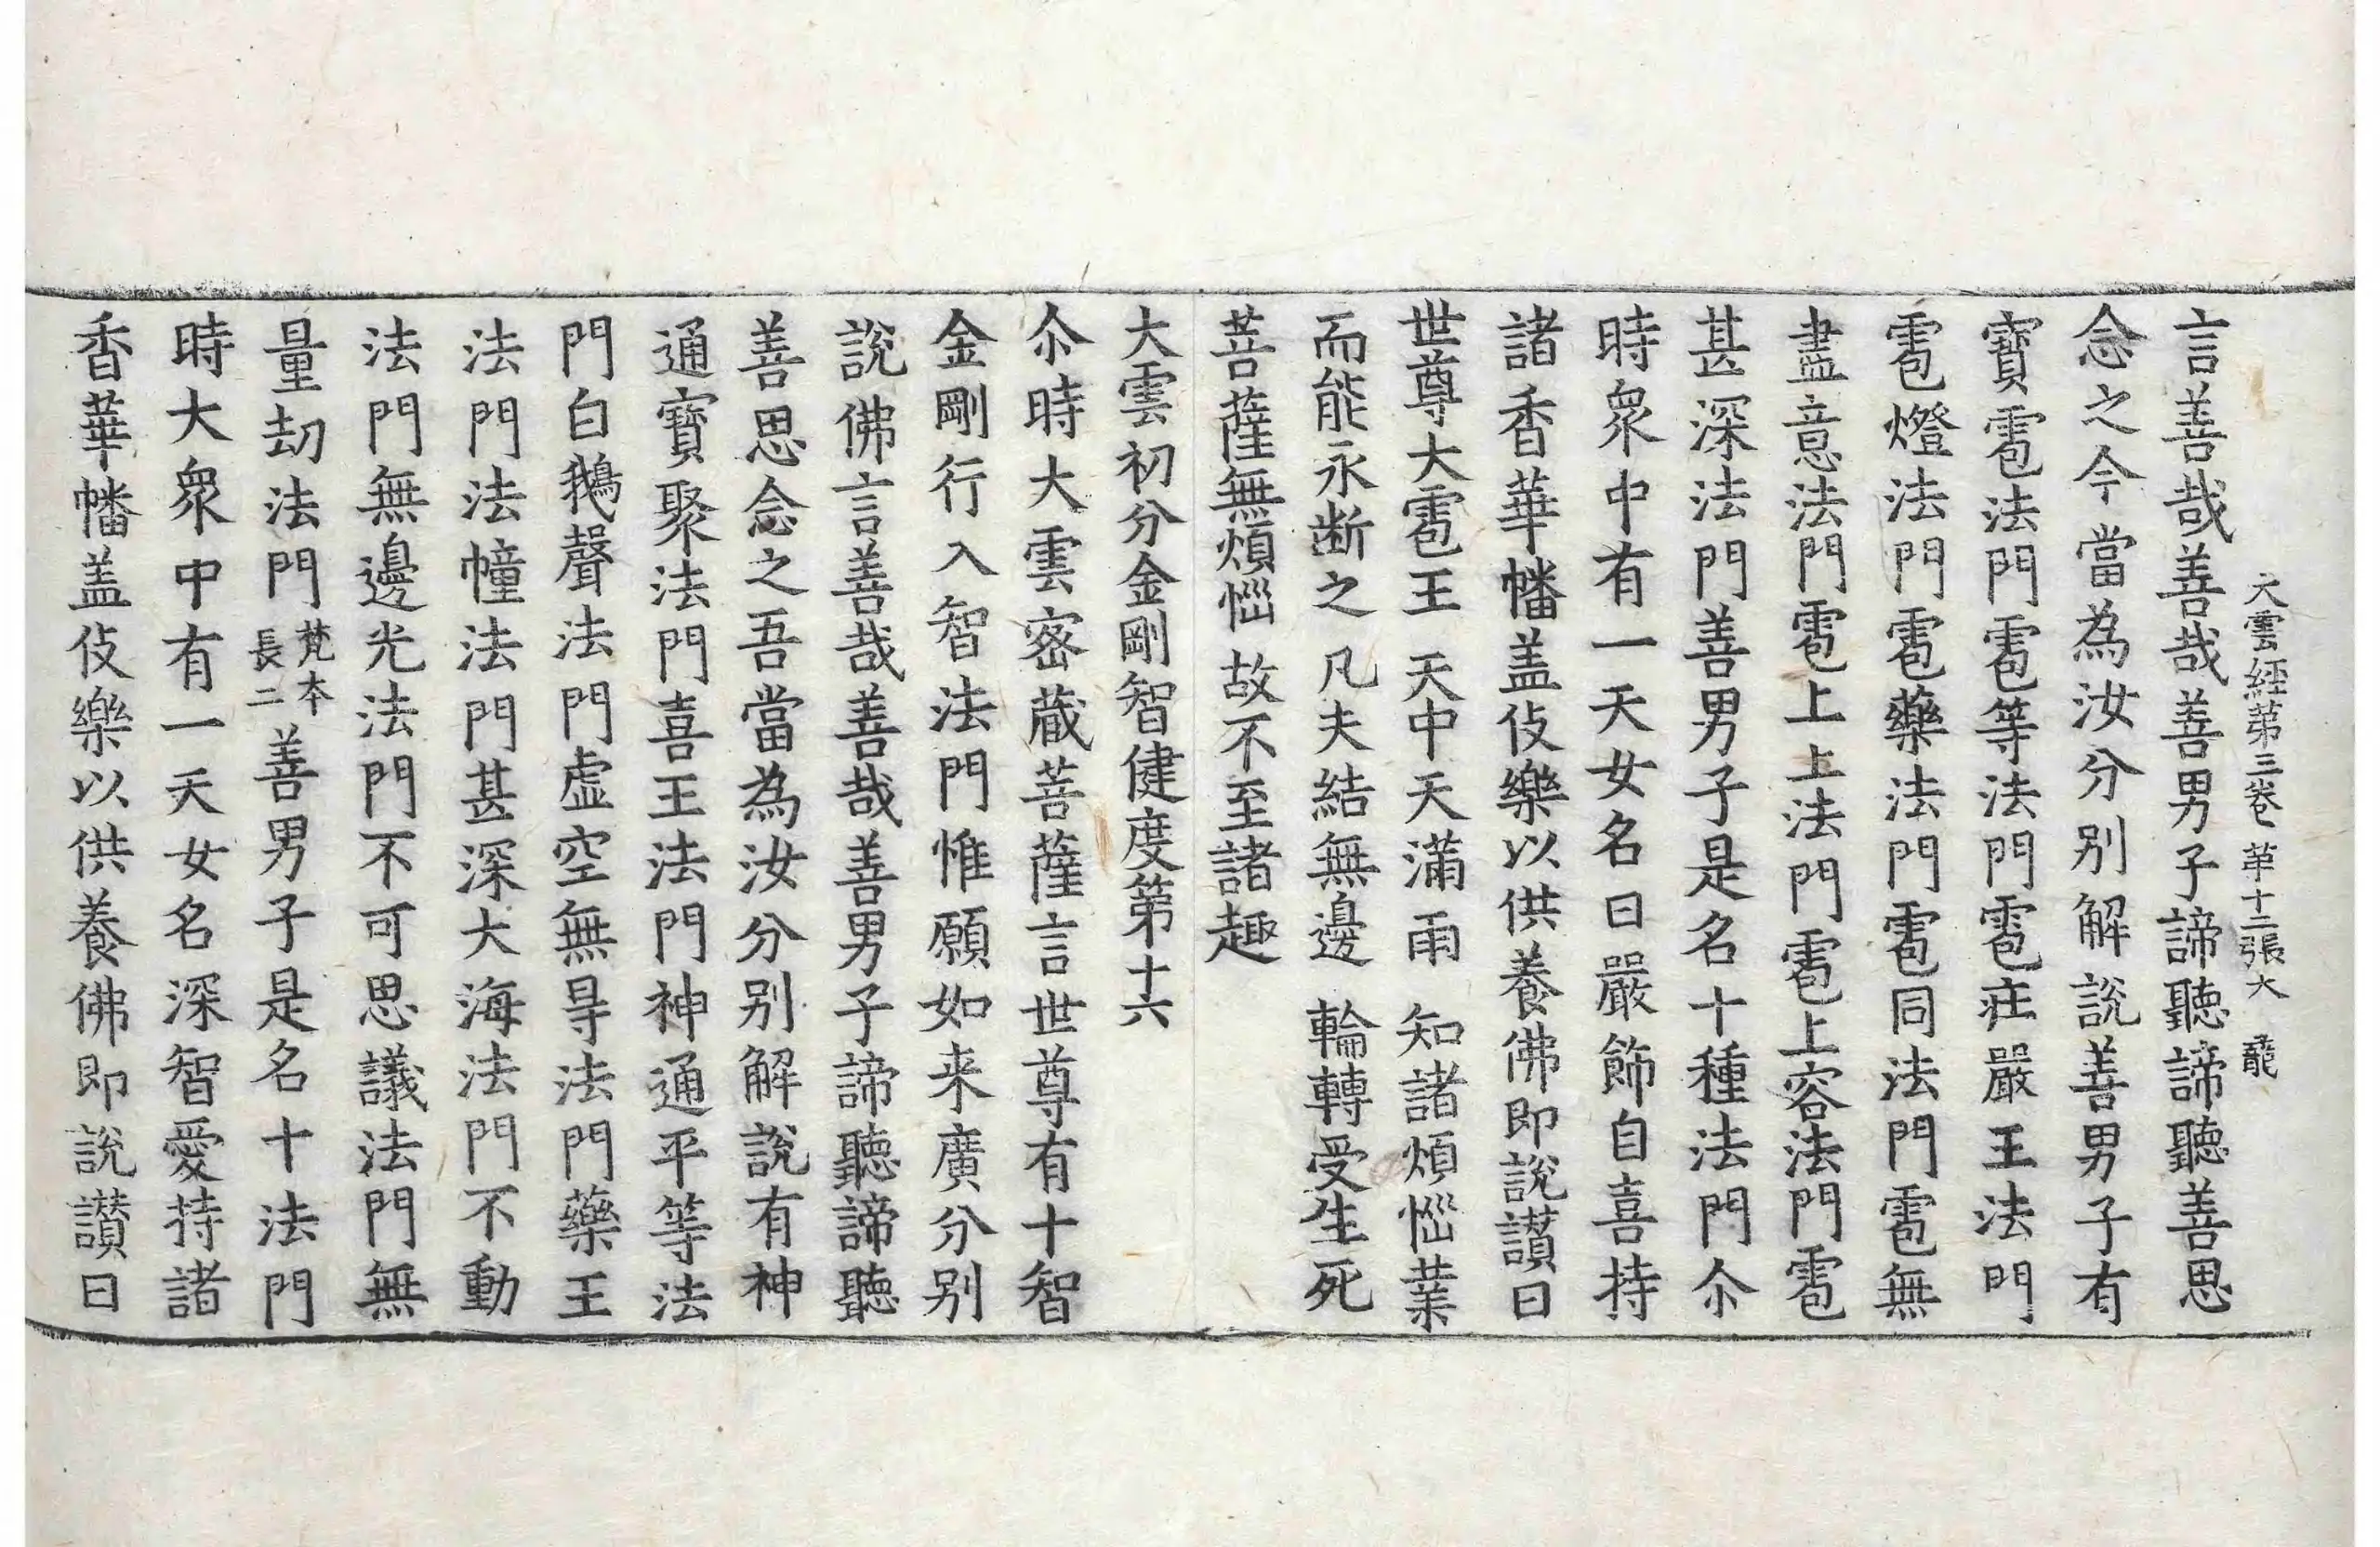 大雲經第三卷 革十二張大 龍
言善哉善哉善男子諦聽諦聽善思
念之今當為汝分別解說善男子有
寶雹法門雹等法門雹莊嚴王法門
雹燈法門雹藥法門雹同法門雹無
盡意法門雹上上法門雹上容法門雹
甚深法門善男子是名十種法門尒
時眾中有一天女名曰嚴飾自喜持
諸香華幡盖伎樂以供養佛即說讃曰
世尊大雹王 天中天滿雨 知諸煩惱業
而能永断之 凡夫結無邊 輪轉受生死
菩薩無煩惱 故不至諸趣
大雲初分金剛智健度第十六
尒時大雲密蔵菩薩言世尊有十智
金剛行入智法門惟願如来廣分別
說佛言善哉善哉善男子諦聽諦聽
善思念之吾當為汝分別解說有神
通寶聚法門喜王法門神通平等法
門白鵝聲法門虛空無㝵法門藥王
法門法幢法門甚深大海法門不動
法門無邊光法門不可思議法門無
量劫法門梵本長二善男子是名十法門
時大眾中有一天女名深智愛持諸
香華幡盖伎樂以供養佛即說讃曰